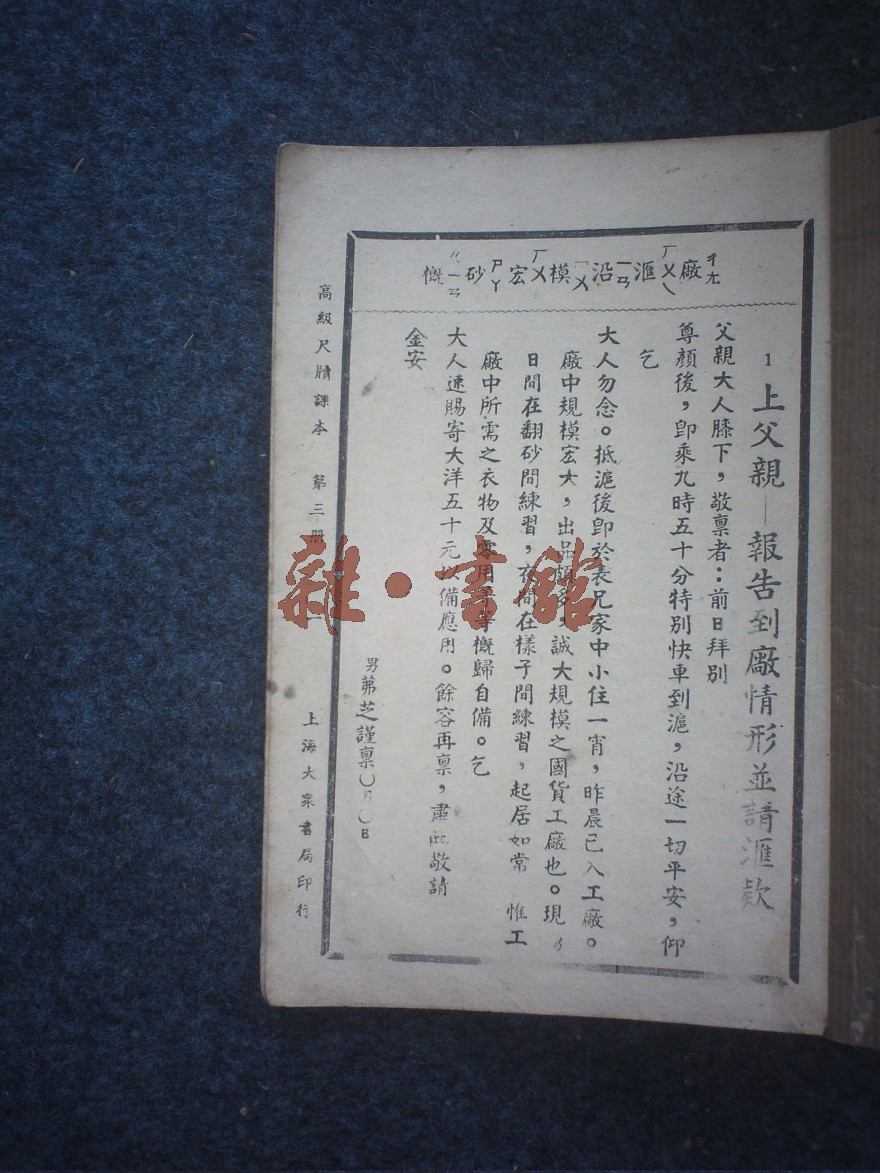 廠ㄔㄤ 滙ㄏㄨㄟ 沿ㄧㄢ 模ㄇㄨ 宏ㄏㄨㄥ 砂ㄕㄚ 概ㄍㄞ
1 上父親—報告到廠情形並請滙款
父親大人膝下，敬禀者：前日拜別
尊顏後，卽乘九時五十分特別快車到滬，沿途一切平安，仰
乞
大人勿念。抵滬後卽於表兄家中小住一宵，昨晨已入工廠。
廠中規模宏大，出品頗多，誠大規模之國貨工廠也。現
日間在翻砂間練習，夜間在樣子間練習，起居如常 惟工
廠中所需之衣物及零用等概歸自備。乞
大人速賜寄大洋五十元以備應用。餘容再禀，肅此敬請
金安
男弟芝謹禀〇月〇日
高級尺牘課本 第三册 一
上海大衆書局印行
雜·書館